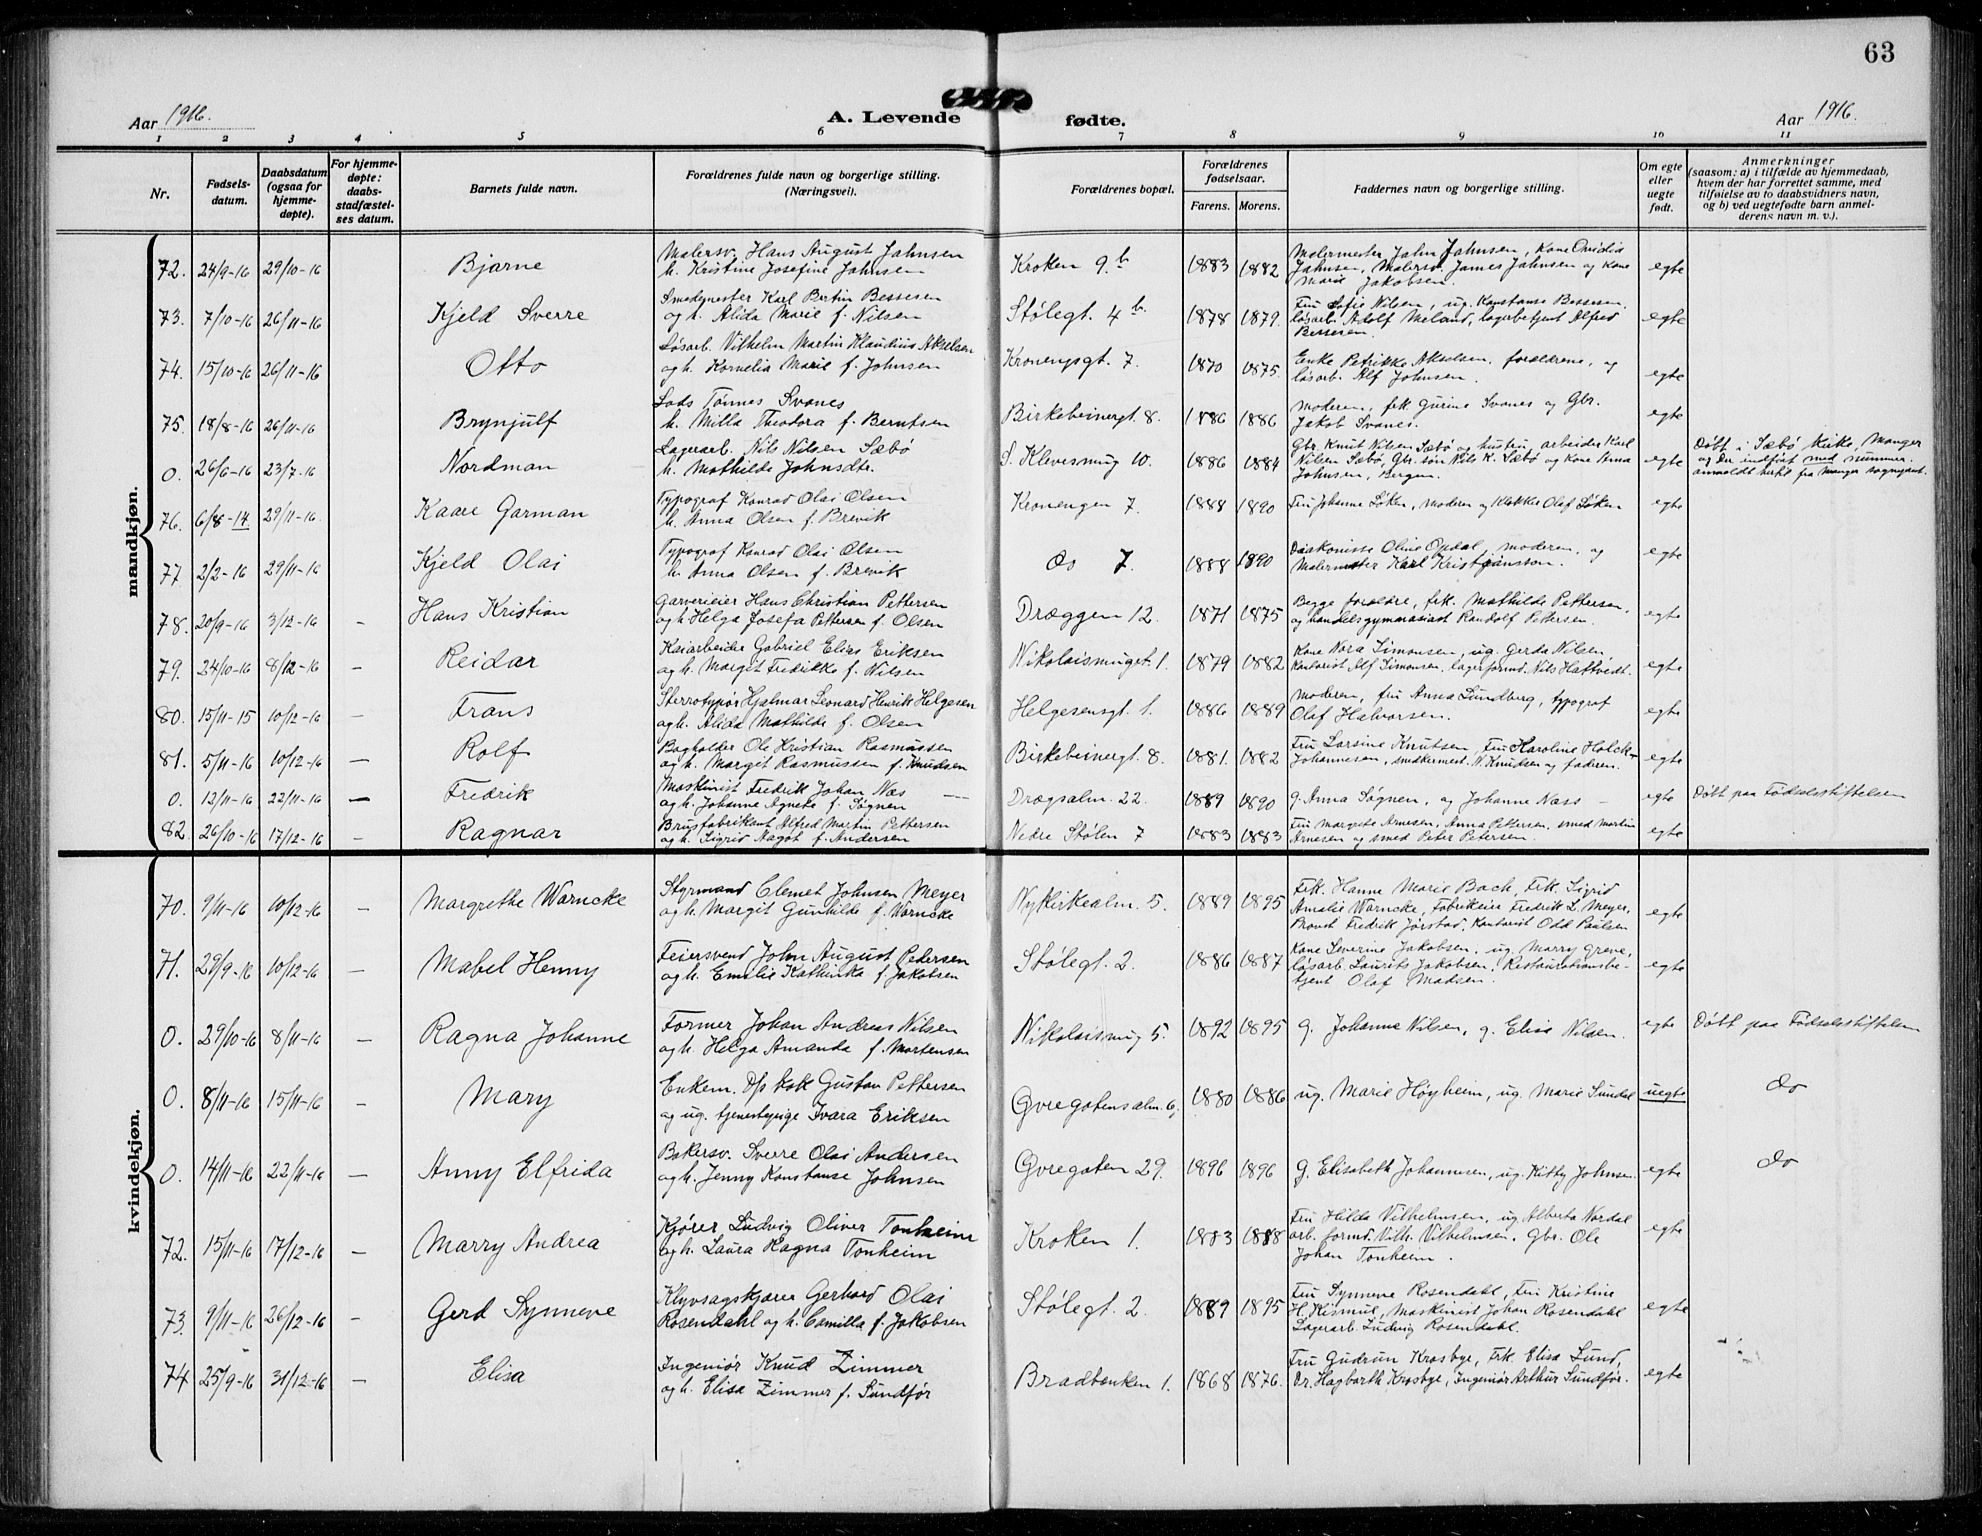 63
Aar 1916. A. Levende fødte. Aar 1916.
1 2 3 4 5 6 7 8 9 10 11
Nr. Fødsels-datum. Daabsdatum (ogsaa for hjemme-døpte). For hjemme-døpte: daabs-stadfæstel-ses datum. Barnets fulde navn. Forældrenes fulde navn og borgerlige stilling. (Næringsvei). Forældrenes bopæl. Forældrenes fødselsaar. Farens. Morens. Faddernes navn og borgerlige stilling. Om egte eller uegte født. Anmerkninger (saasom: a) i tilfælde av hjemmedaab, hvem der har forrettet samme, med tilføielse av to daabsvidners navn, og b) ved uegtefødte barn anmel-derens navn m. v.).
mandkjøn.
72. 24/9-16 29/10-16 Bjarne Malersv. Hans August Jahnsen
h. Kristine Josefine Jahnsen Kroken 9b 1883 1882 Malermester John Jahnsen, kone Ovidia
Jahnsen, Malersv. James Jahnsen og kone
Marie Jakobsen. egte
73. 7/10-16 26/11-16 Kjeld Sverre Smedmester Karl Bertin Bessesen
og h. Alida Marie f. Nilsen Stølegt. 4b. 1878 1879. Fru Sofie Nilsen, ug. Konstanse Bessesen.
løsarb. Adolf Meland, lagerbetjent Alfred
Bessesen egte
74. 15/10-16 26/11-16 Otto Løsarb. Vilhelm Martin Klaudius Akselsen
og h. Kornelia Marie f. Johnsen Kronengsgt. 7. 1870 1875. Enke Petrikke Akselsen, forældrene, og
løsarb. Alf Johnsen. egte
75. 18/8-16 26/11-16 Brynjulf Lods Tønnes Svanes
h. Milla Theodora f. Berntsen Birkebeinergt 8. 1886 1886 Moderen, frk. Gurine Svanes og Gbr.
Jakob Svanes. egte
0. 26/6-16 23/7-16 Nordman Lagerarb. Nils Nilsen Sæbø
h. Mathilde Johnsdtr. S. Klevesmug 10. 1886 1884 Gbr. Knut Nilsen Sæbø og hustru, arbeider Karl
Nilsen Sæbø, Gbr. søn Nils K. Sæbø og kone Anna
Johnsen, Bergen. egte Døbt i Sæbø Kirke, Manger
og der indført med nummer.
anmeldt hertil fra Manger sogneprst.
76. 6/8-14 29/11-16. Kaare Garman Typograf Konrad Olai Olsen
h. Anna Olsen f. Brevik Kronengen 7. 1888 1890 Fru Johanne Løken, moderen og Klokker Olaf Løken egte
77 2/2-16 29/11-16 Kjeld Olai Typograf Konrad Olai Olsen
h. Anna Olsen f. Brevik do 7. 1888 1890 Diakonisse Oline Opdal, moderen, og
Malermester Karl Kristjansson. egte
78. 20/9-16 3/12-16 - Hans Kristian Garverieier Hans Christian Pettersen
og h. Helga Josefa Pettersen f. Olsen Dræggen 12. 1871 1875 Begge forældre, frk. Mathilde Pettersen,
og handelsgymnasiast Randolf Pettersen. egte
79. 24/10-16 8/12-16 - Reidar Kaiarbeider Gabriel Elias Eriksen
og h. Margit Fredrikke f. Nilsen Nikolaismuget. 1. 1879 1882 Kone Nora Simonsen, ug. Gerda Nilsen,
Kontorist Alf Simonsen, lagerformd. Nils Hattvedt. egte
80. 15/11-15 10/12-16 - Frans Sterrotypør Hjalmar Leonard Henrik Helgesen
og h. Alida Mathilde f. Olsen Helgesensgt. 1. 1886 1889 Moderen, fru Anna Lundberg, typograf
Olaf Halvorsen. egte
81. 5/11-16 10/12-16 - Rolf Bogholder Ole Kristian Rasmussen
og h. Margit Rasmussen f. Knudsen Birkebeinergt. 8. 1881. 1882 Fru Larsine Knutsen, Fru Karoline Holck-
Johannesen, snedkermest. N. Knudsen og faderen. egte
0. 12/11-16 22/11-16 - Fredrik Maskinist Fredrik Johan Næs
og h. Johanne Agnete f. Søgnen Drægsalm. 22. 1889 1890 g. Anna Søgnen, og Johanne Næss - egte Døbt paa Fødselsstiftelsen
82. 26/10-16 17/12-16 - Ragnar Brusfabrikant Alfred Martin Pettersen
og h. Sigrid Nagot f. Andersen Nedre Stølen 7 1883 1883 Fru Margrete Arnesen, Anna Pettersen, smed Martin
Arnesen og smed Peter Petersen. egte
kvindekjøn.
70. 9/11-16 10/12-16 - Margrethe Warncke Styrmand Clemet Johnsen Meyer
og h. Margit Gunhilde f. Warncke Nykirkealm. 5. 1889 1895 Frk. Hanne Marie Bach, Frk. Sigrid
Amalie Warncke, Fabrikeier Fredrik L. Meyer,
Provst Fredrik Jørstad, Kontorist Odd Paulsen egte
71. 29/9-16 10/12-16 - Mabel Henny Feiersvend John August Pedersen
og h. Emilie Kathinka f. Jakobsen Stølegt. 2. 1886 1887 Kone Severine Jakobsen, ug. Marry Greve,
løsarb. Laurits Jakobsen, Restaurationsbe-
tjent Olaf Madsen. egte
0. 29/10-16 8/11-16 - Ragna Johanne Former Johan Andreas Nilsen
og h. Helga Amanda f. Mortensen Nikolaismug 5. 1892 1895 g. Johanna Nilsen, g. Elisa Nilsen. egte Døbt paa Fødselsstiftelsen
0. 8/11-16 15/11-16 - Mary Enkem. D/s kok Gustav Pettersen
og ug. tjenestepige Ivara Eriksen Øvregatensalm. 6, 1880 1886 ug. Marie Høyheim, ug. Marie Sundal uegte do
0. 14/11-16 22/11-16 - Anny Elfrida Bakersv. Sverre Olai Andersen
og h. Jenny Konstanse Johnsen Øvregaten 29. 1896 1896 g. Elisabeth Johannesen, ug. Kitty Johnsen. egte do
72. 15/11-16 17/12-16 - Marry Andrea Kjører Ludvig Oliver Tonheim
og h. Laura Ragna Tonheim Kroken 1. 1883 1888 Fru Hilda Vilhelmsen, ug. Alberta Nordal
arb. formd. Vilh. Vilhelmsen, Gbr. Ole
Johan Tonheim. egte
73. 9/11-16 26/12-16 - Gerd Synneve Klyvsagskjører Gerhard Olai
Rosendahl og h. Camilla f. Jakobsen Stølegt. 2 1889 1895 Fru Synneve Rosendahl, Fru Kristine
H. Kismul, Maskinist Johan Rosendahl
Lagerarb. Ludvig Rosendahl. egte
74 25/9-16 31/12-16 - Elisa Ingeniør Knud Zimmer
og h. Elisa Zimmer f. Sundfør Bradbenken 1. 1868 1876. Fru Gudrun Krosbye, Frk. Elisa Lund,
Dr. Hagbarth Krosbye, Ingeniør Arthur Sundfør. egte